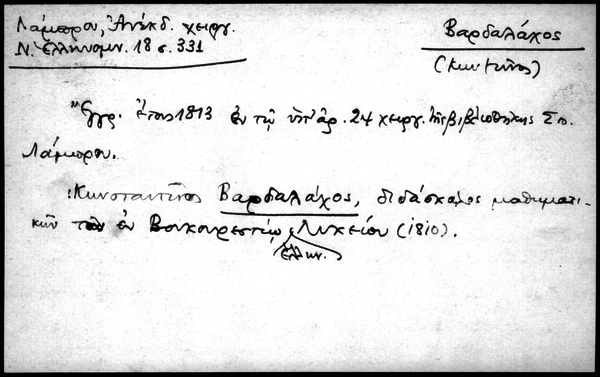 Λάμπρου, Ἀνέκδ. χειργ.
Ν. Ἑλληνομν. 18 σ. 331
Βαρδαλάχος
(Κων/τῖνος)
Ἔγγρ. ἔτους 1813 ἐν τῷ ὑπ' ἀρ. 24 χειργ. τῆς βιβλιοθήκης Σπ.
Λάμπρου.
:Κωνσταντῖνος Βαρδαλάχος, διδάσκαλος μαθηματι-
κῶν τοῦ ἐν Βουκουρεστίῳ Λυκείου (1810).
ἑλλην.